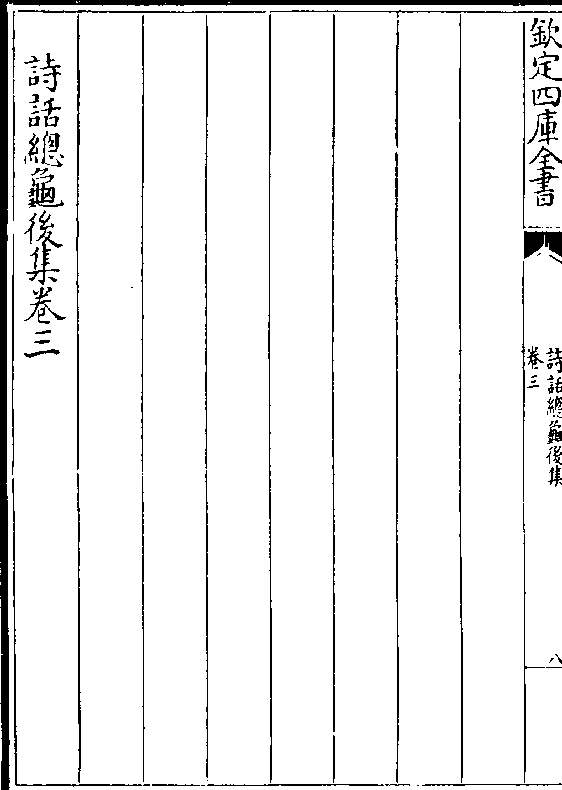 欽定四庫全書
詩話總龜後集
卷三
八
詩話總龜後集卷三